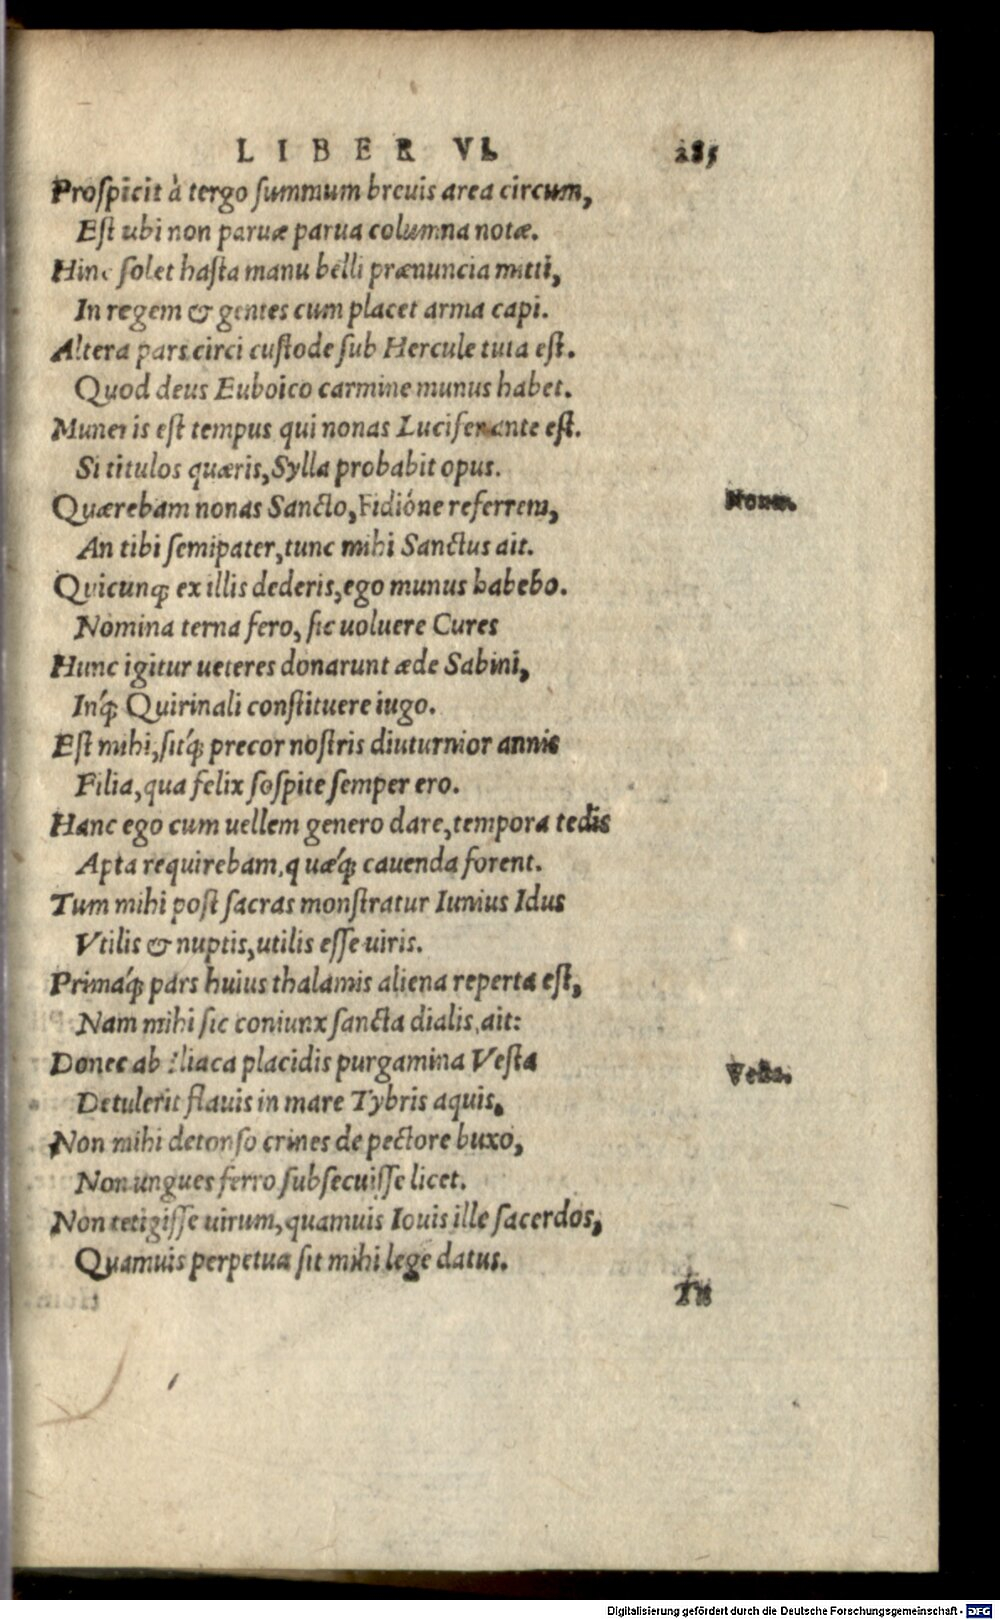 LIBER VI.
285
Prospicit à tergo summum breuis area circum,
Est ubi non paruæ parua columna notæ.
Hinc solet hasta manu belli prænuncia mitti,
In regem & gentes cum placet arma capi.
Altera pars circi custode sub Hercule tuta est.
Quod deus Euboico carmine munus habet.
Muneris est tempus qui nonas Lucifer ante est.
Si titulos quæris, Sylla probabit opus.
Quærebam nonas Sancto, Fidióne referrem,
Nonæ.
An tibi semipater, tunc mihi Sanctus ait.
Quicunq; ex illis dederis, ego munus habebo.
Nomina terna fero, sic uoluere Cures
Hunc igitur ueteres donarunt æde Sabini,
Inq́; Quirinali constituere iugo.
Est mihi, sitq́; precor nostris diuturnior annis
Filia, qua felix sospite semper ero.
Hanc ego cum uellem genero dare, tempora tedis
Apta requirebam, quæq́; cauenda forent.
Tum mihi post sacras monstratur Iunius Idus
Vtilis & nuptis, utilis esse uiris.
Primaq́; pars huius thalamis aliena reperta est,
Nam mihi sic coniunx sancta dialis, ait:
Donec ab Iliaca placidis purgamina Vesta
Vesta.
Detulerit flauis in mare Tybris aquis,
Non mihi detonso crines de pectore buxo,
Non ungues ferro subsecuisse licet.
Non tetigisse uirum, quamuis Iouis ille sacerdos,
Quamuis perpetua sit mihi lege datus.
Tu
Digitalisierung gefördert durch die Deutsche Forschungsgemeinschaft - DFG